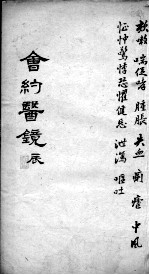 欬嗽 喘促哮 腫脹 失血 蓄瘀 中風
怔忡驚悸恐懼健忘 泄瀉 嘔吐
會約醫鏡 辰